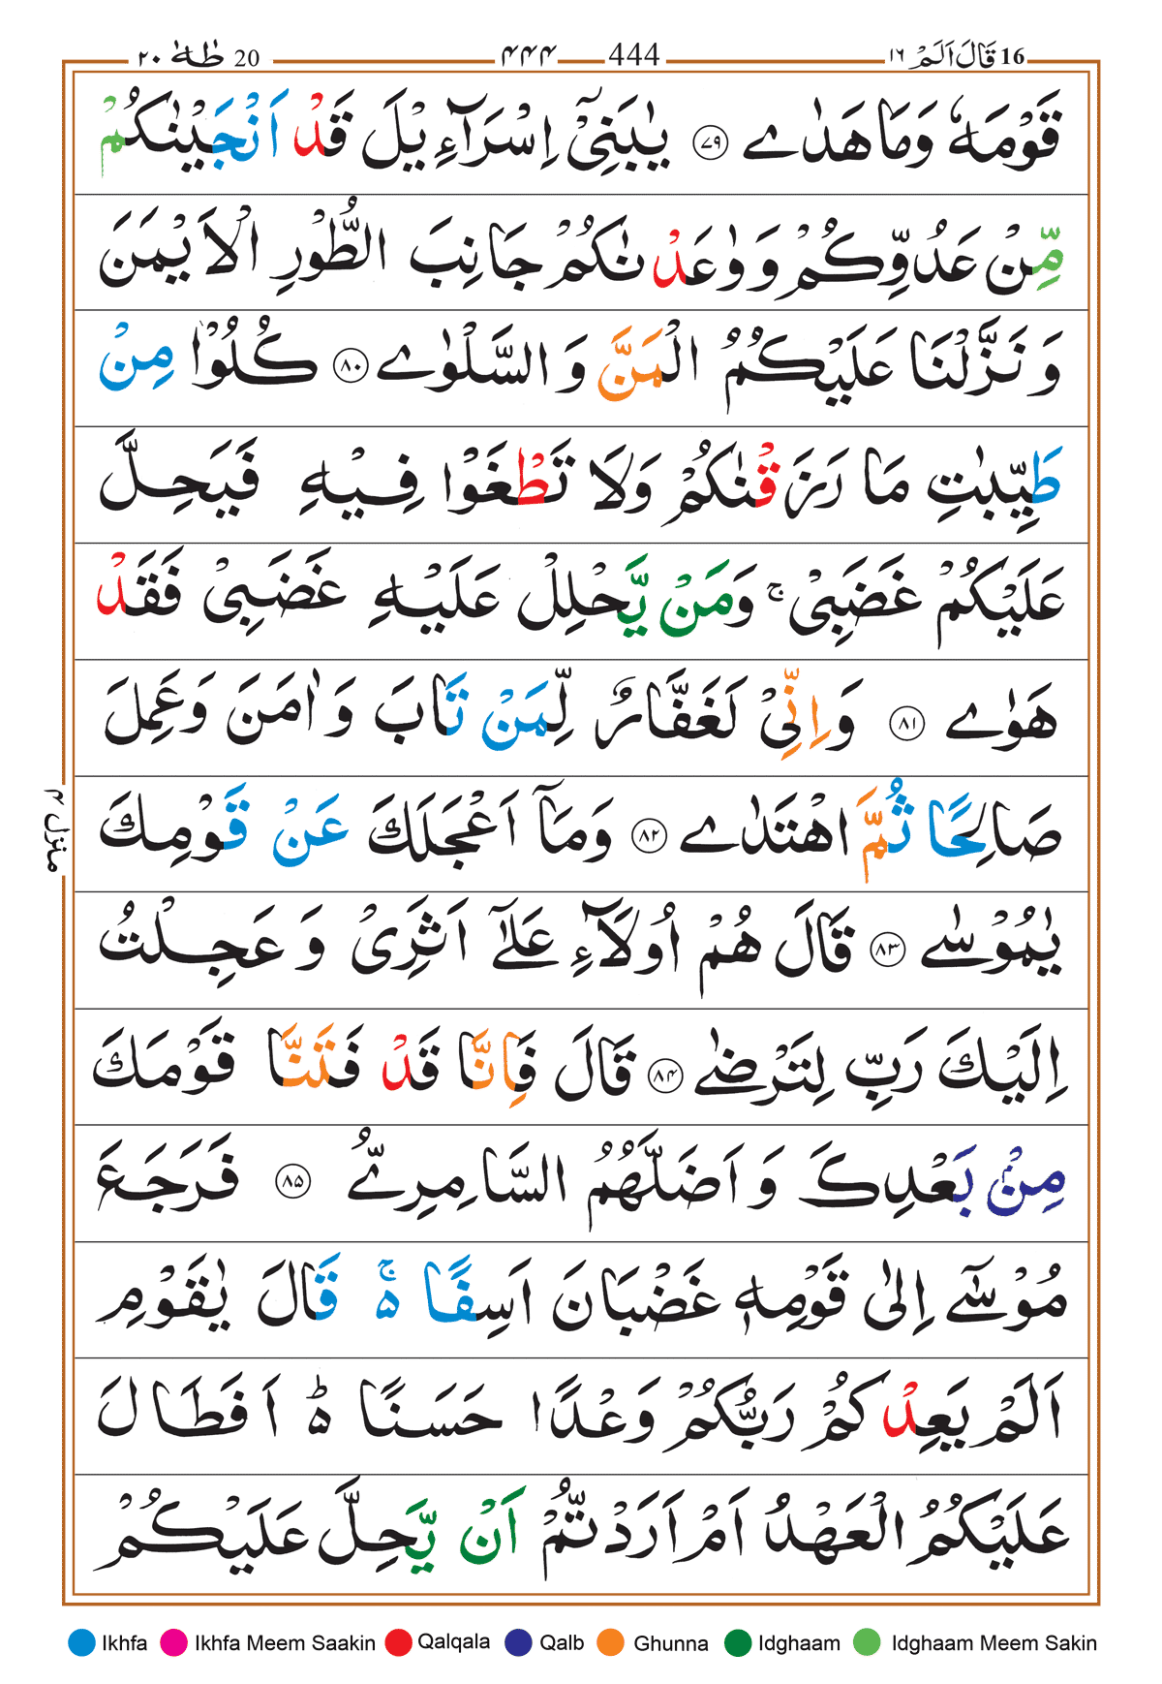 16 قَالَ اَلَمْ ١٦ 444 ۴۴۴ 20 طٰهٰ ٢٠
قَوْمَهٗ وَمَا هَدٰے ﴿٧٩﴾ يٰبَنِىْٓ اِسْرَآءِيْلَ قَدْ اَنْجَيْنٰكُمْ
مِّنْ عَدُوِّكُمْ وَوٰعَدْنٰكُمْ جَانِبَ الطُّوْرِ الْاَيْمَنَ
وَنَزَّلْنَا عَلَيْكُمُ الْمَنَّ وَالسَّلْوٰے ﴿٨٠﴾ كُلُوْا مِنْ
طَيِّبٰتِ مَا رَزَقْنٰكُمْ وَلَا تَطْغَوْا فِيْهِ فَيَحِلَّ
عَلَيْكُمْ غَضَبِىْ ۚ وَمَنْ يَّحْلِلْ عَلَيْهِ غَضَبِىْ فَقَدْ
هَوٰے ﴿٨١﴾ وَاِنِّىْ لَغَفَّارٌ لِّمَنْ تَابَ وَاٰمَنَ وَعَمِلَ
صَالِحًا ثُمَّ اهْتَدٰے ﴿٨٢﴾ وَمَآ اَعْجَلَكَ عَنْ قَوْمِكَ
يٰمُوْسٰے ﴿٨٣﴾ قَالَ هُمْ اُولَآءِ عَلٰٓے اَثَرِىْ وَعَجِلْتُ
اِلَيْكَ رَبِّ لِتَرْضٰے ﴿٨۴﴾ قَالَ فَاِنَّا قَدْ فَتَنَّا قَوْمَكَ
مِنْۢ بَعْدِكَ وَاَضَلَّهُمُ السَّامِرِىُّ ﴿٨۵﴾ فَرَجَعَ
مُوْسٰٓے اِلٰى قَوْمِهٖ غَضْبَانَ اَسِفًا ۵ۚ قَالَ يٰقَوْمِ
اَلَمْ يَعِدْكُمْ رَبُّكُمْ وَعْدًا حَسَنًا ۵ؕ اَفَطَالَ
عَلَيْكُمُ الْعَهْدُ اَمْ اَرَدْتُّمْ اَنْ يَّحِلَّ عَلَيْكُمْ
منزل ۴
Ikhfa Ikhfa Meem Saakin Qalqala Qalb Ghunna Idghaam Idghaam Meem Sakin